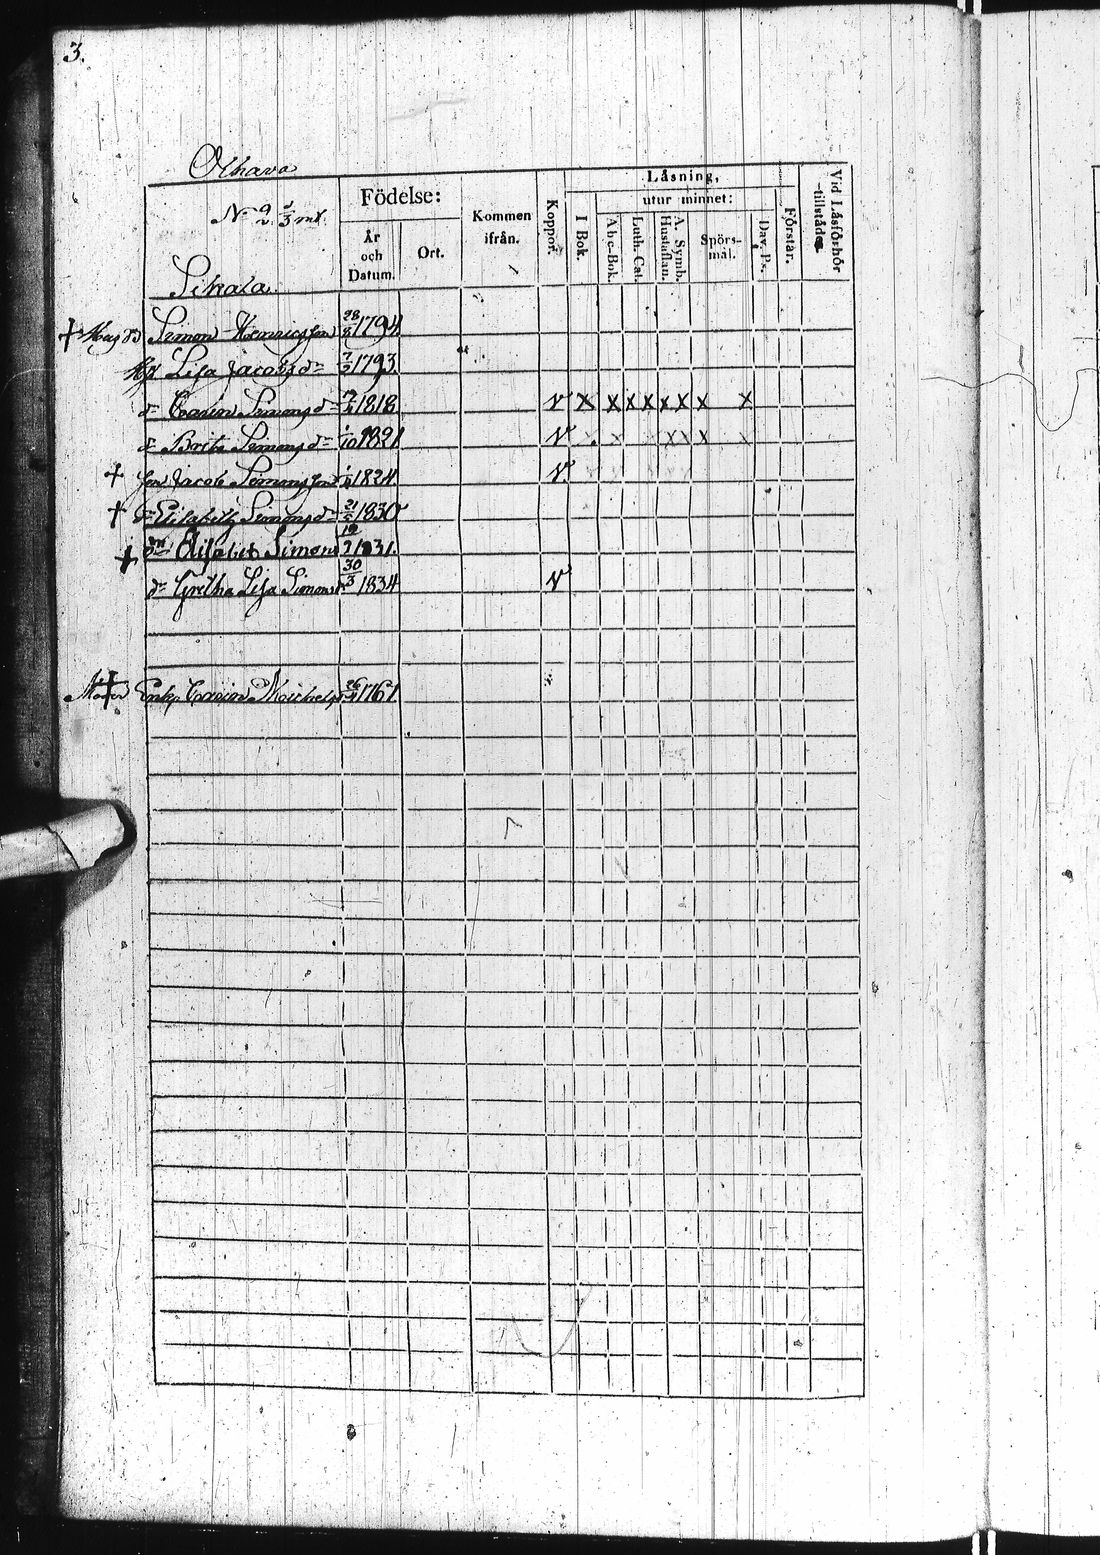 3.
Olhava
No 2. 1/3 mt.
Sihala.
Födelse:
År och Datum.
Ort.
Kommen ifrån.
Koppor.
Läsning,
I Bok.
utur minnet:
Abc-Bok.
Luth. Cat.
A. Symb. Hustaflan.
Spörs-mål.
Dav. Ps.
Förstår.
Vid Läsförhör tillstädes.
† Simon Henricsson 28/8 1794
Lisa Jacobs dr 1793.
dr Carin Simons dr 1818 v x x x x x x x x
dr Brita Simons dr 1/10 1821 v x x x x x
† son Jacob Simonsson 1824. v
† dr Elisabeth Simons dr 1830
† Elisabet Simons 1831.
dr Gretha Lisa Simons dr 30/3 1834 v
Moder † Enk. Carin Michels 1761.